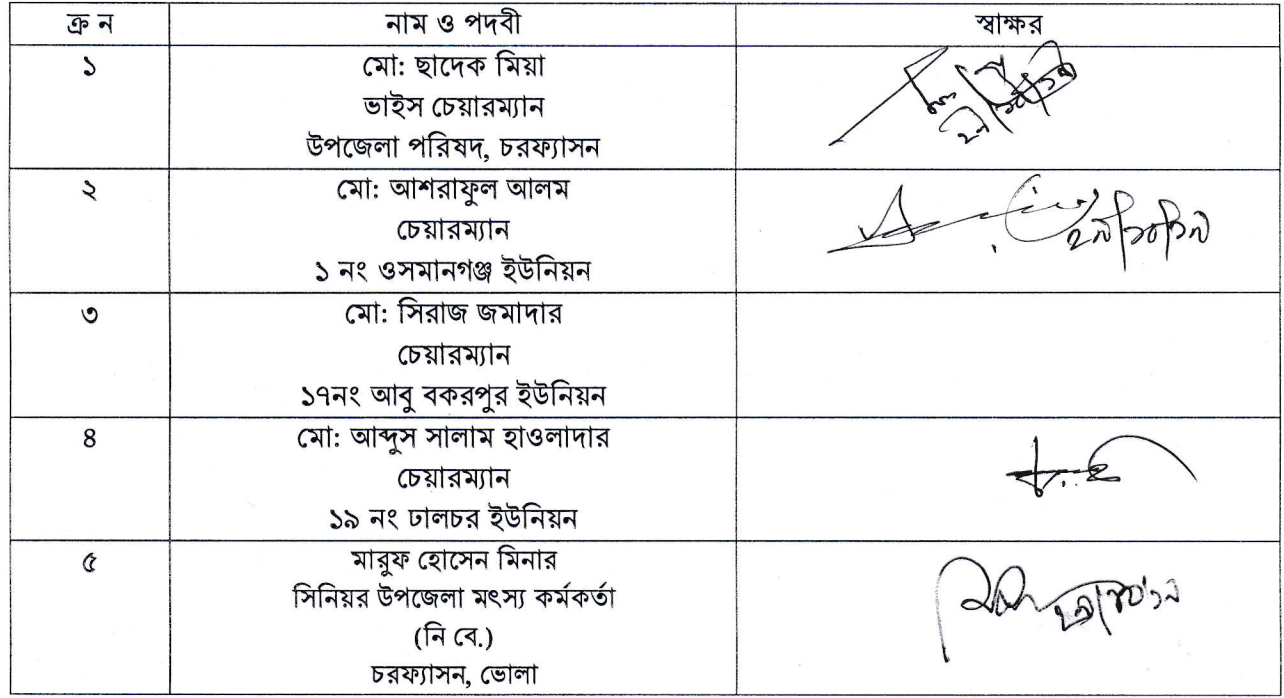 ক্র ন নাম ও পদবী স্বাক্ষর
১ মো: ছাদেক মিয়া
ভাইস চেয়ারম্যান
উপজেলা পরিষদ, চরফ্যাসন
২ মো: আশরাফুল আলম
চেয়ারম্যান
১ নং ওসমানগঞ্জ ইউনিয়ন
৩ মো: সিরাজ জমাদার
চেয়ারম্যান
১৭নং আবু বকরপুর ইউনিয়ন
৪ মো: আব্দুস সালাম হাওলাদার
চেয়ারম্যান
১৯ নং ঢালচর ইউনিয়ন
৫ মারুফ হোসেন মিনার
সিনিয়র উপজেলা মৎস্য কর্মকর্তা
(নি বে.)
চরফ্যাসন, ভোলা